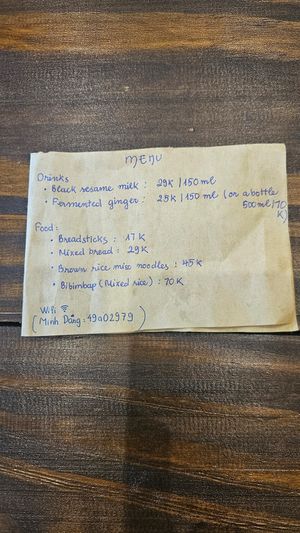 MENU
Drinks
• Black sesame milk : 29K | 150 ml
• Fermented ginger : 25K | 150 ml (or a bottle
500ml | 70
K)
Food :
• Breadsticks : 17 K
• Mixed bread : 29K
• Brown rice miso noodles : 45K
• Bibimbap (Mixed rice) : 70K
Wifi
(Minh Dăng : 49a02979)